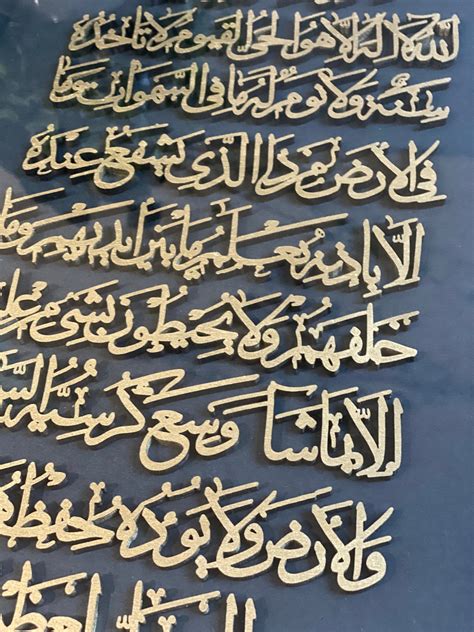 الله لا اله الا هو الحي القيوم لا تاخذه
سنة ولا نوم له ما في السموات وما
في الارض من ذا الذي يشفع عنده
الا باذنه يعلم ما بين ايديهم وما
خلفهم ولا يحيطون بشئ من
الا بما شا وسع كرسيه
والارض ولا يوده حفظ